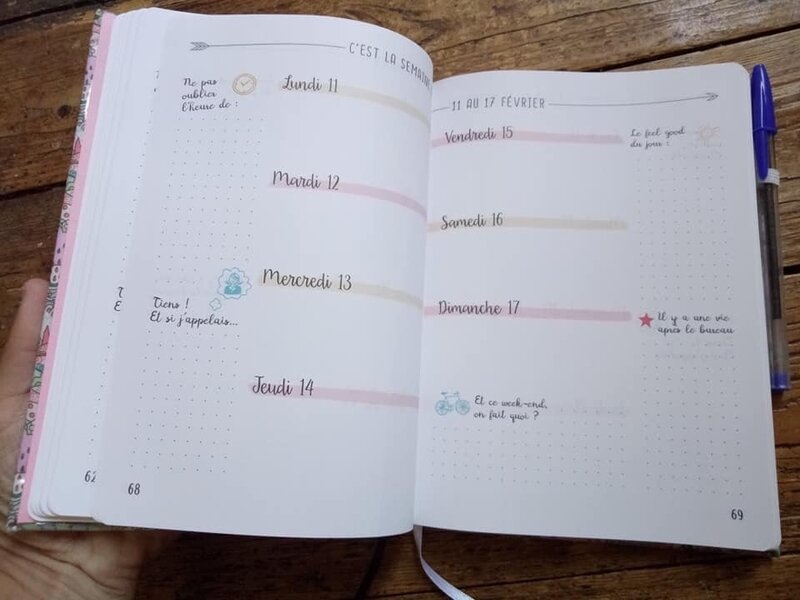 C'EST LA SEMAINE
Ne pas
oublier
l'heure de :
Lundi 11
Mardi 12
Mercredi 13
Tiens !
Et si j'appelais...
Jeudi 14
62
68
11 AU 17 FÉVRIER
Vendredi 15
Le feel good
du jour :
Samedi 16
Dimanche 17
Il y a une vie
après le bureau
Et ce week-end,
on fait quoi ?
69